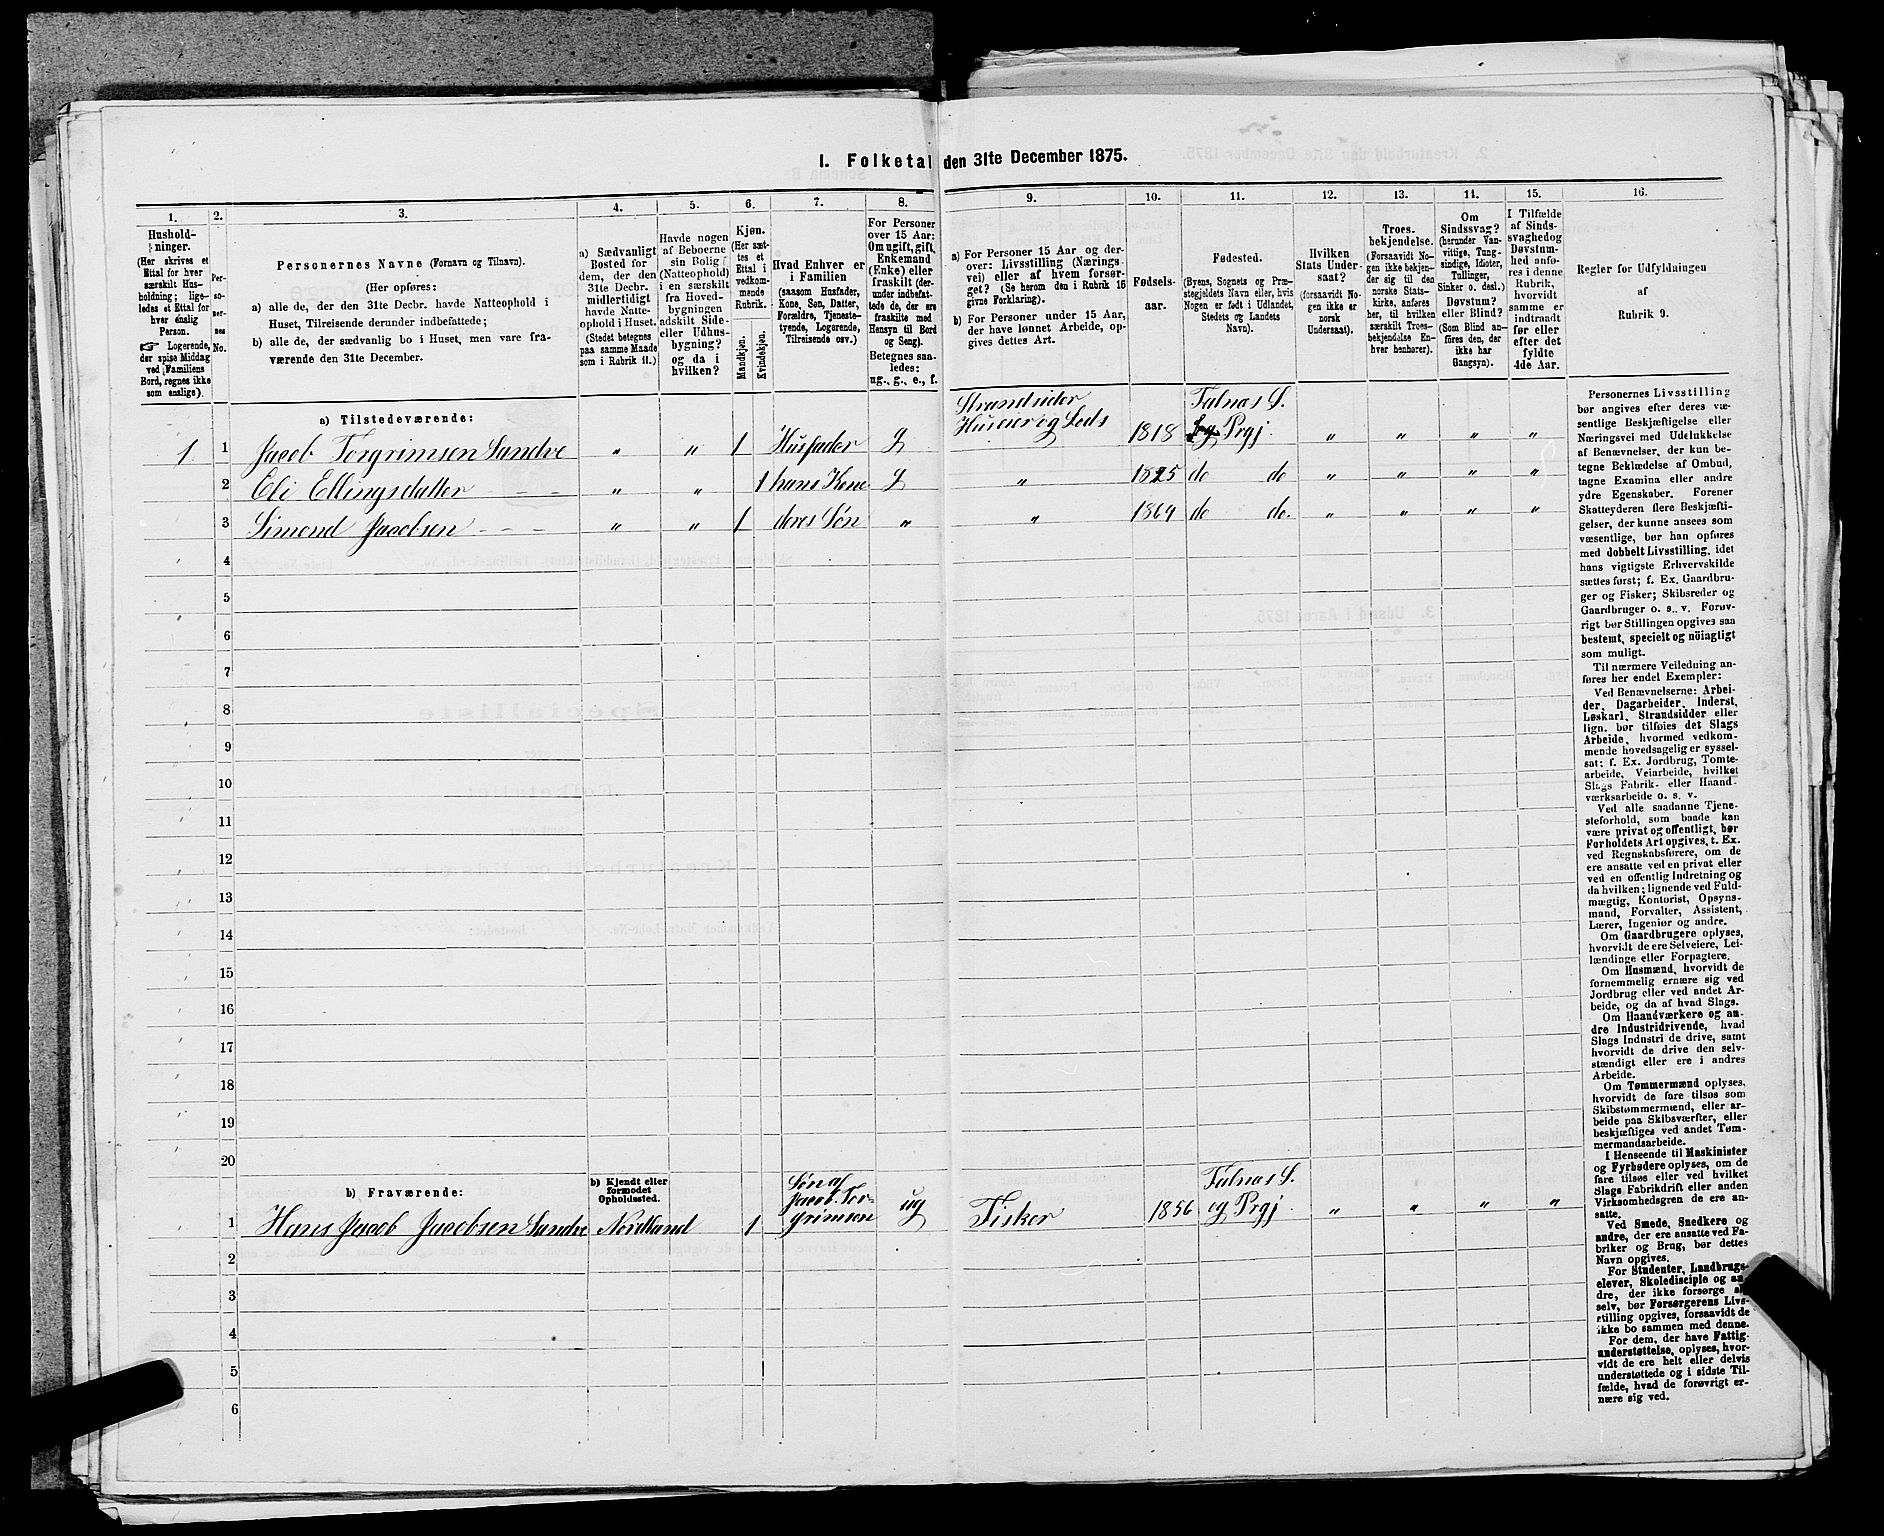 I. Folketal den 31te December 1875.
1. 2. 3. 4. 5. 6. 7. 8. 9. 10. 11. 12. 13. 14. 15. 16.
Hushold-
ninger.
(Her skrives et
Ettal for hver
særskilt Hus-
holdning; lige-
ledes et Ettal for
hver énslig
Person.
☞ Logerende,
der spise Middag
ved Familiens
Bord, regnes ikke
som enslige).
Per-
so-
ner-
nes
No.
Personernes Navne (Fornavn og Tilnavn).
(Her opføres:
a) alle de, der den 31te Decbr. havde Natteophold i
Huset, Tilreisende derunder indbefattede;
b) alle de, der sædvanlig bo i Huset, men vare fra-
værende den 31te December.
a) Sædvanligt
Bosted for
dem, der den
31te Decbr.
midlertidigt
havde Natte-
ophold i Huset.
(Stedet betegnes
paa samme Maade
som i Rubrik 11.)
Havde nogen
af Beboerne
sin Bolig
(Natteophold)
i en særskilt
fra Hoved-
bygningen
adskilt Side-
eller Udhus-
bygning?
og da i
hvilken?
Kjøn.
(Her sæt-
tes et
Ettal i
vedkom-
mende
Rubrik.
Mandkjøn.
Kvindekjøn.
Hvad Enhver er
i Familien
(saasom Husfader,
Kone, Søn, Datter,
Forældre, Tjeneste-
tyende, Logerende,
Tilreisende osv.)
For Personer
over 15 Aar:
Om ugift, gift,
Enkemand
(Enke) eller
fraskilt (der-
under indbefat-
tede de, der ere
fraskilte med
Hensyn til Bord
og Seng).
Betegnes saa-
ledes:
ug., g., e., f.
a) For Personer 15 Aar og der-
over: Livsstilling (Nærings-
vei) eller af hvem forsør-
get? (Se herom den i Rubrik 16
givne Forklaring).
b) For Personer under 15 Aar,
der have lønnet Arbeide, op-
gives dettes Art.
Fødsels-
aar.
Fødested.
(Byens, Sognets og Præ-
stegjeldets Navn eller, hvis
Nogen er født i Udlandet,
Stedets og Landets
Navn).
Hvilken
Stats Under-
saat?
(forsaavidt No-
gen ikke er
norsk
Undersaat).
Troes-
bekjendelse.
(Forsaavidt No-
gen ikke bekjen-
der sig til den
norske Stats-
kirke, anføres
her, til hvilken
særskilt Troes-
bekjendelse En-
hver henhører).
Om
Sindssvag?
(herunder Van-
vittige, Tung-
sindige, Idioter,
Tullinger,
Sinker o. desl.)
Døvstum?
eller Blind?
(Som Blind an-
føres den, der
ikke har
Gangsyn).
I Tilfælde
af Sinds-
svaghed og
Døvstum-
hed anfø-
res i denne
Rubrik,
hvorvidt
samme er
indtraadt
før eller
efter det
fyldte
4de Aar.
Regler for Udfyldningen
af
Rubrik 9.
a) Tilstedeværende:
1 1 Jacob Torgrimsen Sandve " " 1 Husfader g Strandsider Huseier og Leds 1818 Falnas S. og Prgj. " " " "
2 Eli Ellingsdatter " " 1 hans Kone g " 1825 do do " " " "
3 Simond Jacobsen " " 1 deres Søn " " 1864 do do. " " " "
4
5
6
7
8
9
10
11
12
13
14
15
16
17
18
19
20
b) Fraværende:
b) Kjendt eller
formodet
Opholdssted.
1 Hans Jacob Jacobsen Sandve Nordland 1 Søn af Jacob Tor-grimsen ug Fisker 1856 Falnas S. og Prgj. " " " "
2
3
4
5
6
Personernes Livsstilling
bør angives efter deres væ-
sentlige Beskjæftigelse eller
Næringsvei med Udelukkelse
af Benævnelser, der kun be-
tegne Beklædelse af Ombud,
tagne Examina eller andre
ydre Egenskaber. Forener
Skatteyderen flere Beskjæfti-
gelser, der kunne ansees som
væsentlige, bør han opføres
med dobbelt Livsstilling, idet
hans vigtigste Erhvervskilde
sættes først; f. Ex. Gaardbru-
ger og Fisker; Skibsreder og
Gaardbruger o. s. v. Forøv-
rigt bør Stillingen opgives saa
bestemt, specielt og nöiagtigt
som muligt.
Til nærmere Veiledning an-
føres her endel Exempler:
Ved Benævnelserne: Arbei-
der, Dagarbeider, Inderst,
Løskarl, Strandsidder eller
lign. bør tilføies det Slags
Arbeide, hvormed vedkom-
mende hovedsagelig er syssel-
sat; f. Ex. Jordbrug, Tomte-
arbeide, Veiarbeide, hvilket
Slags Fabrik- eller Haand-
værksarbeide o. s. v.
Ved alle saadanne Tjene-
steforhold, som baade kan
være privat og offentligt, bør
Forholdets Art opgives, t. Ex.
ved Regnskabsførere, om de
ere ansatte ved en privat eller
ved en offentlig Indretning og
da hvilken; lignende ved Fuld-
mægtig, Kontorist, Opsyns-
mand, Forvalter, Assistent,
Lærer, Ingeniør og andre.
Om Gaardbrugere oplyses,
hvorvidt de ere Selveiere, Lei-
lændinge eller Forpagtere.
Om Husmænd, hvorvidt de
fornemmelig ernære sig ved
Jordbrug eller ved andet Ar-
beide, og da af hvad Slags.
Om Haandværkere og an-
dre Industridrivende, hvad
Slags Industri de drive, samt
hvorvidt de drive den selv-
stændigt eller ere i andres
Arbeide.
Om Tømmermænd oplyses,
hvorvidt de fare tilsøs som
Skibstømmermænd, eller ar-
beide paa Skibsværfter, eller
beskjæftiges ved andet Tøm-
mermandsarbeide.
I Henseende til Maskinister
og Fyrbødere oplyses, om de
fare tilsøs eller ved hvilket
Slags Fabrikdrift eller anden
Virksomhedsgren de ere an-
satte.
Ved Smede, Snedkere og
andre, der ere ansatte ved Fa-
briker og Brug, bør dettes
Navn opgives.
For Studenter, Landbrugs-
elever, Skoledisciple og an-
dre, der ikke forsørge sig
selv, bør Forsørgerens Livs-
stilling opgives, forsaavidt de
ikke bo sammen med denne.
For dem, der have Fattig-
understøttelse, oplyses, hvor-
vidt de ere helt eller delvis
understøttede og i sidste Til-
fælde, hvad de forøvrigt er-
nære sig ved.